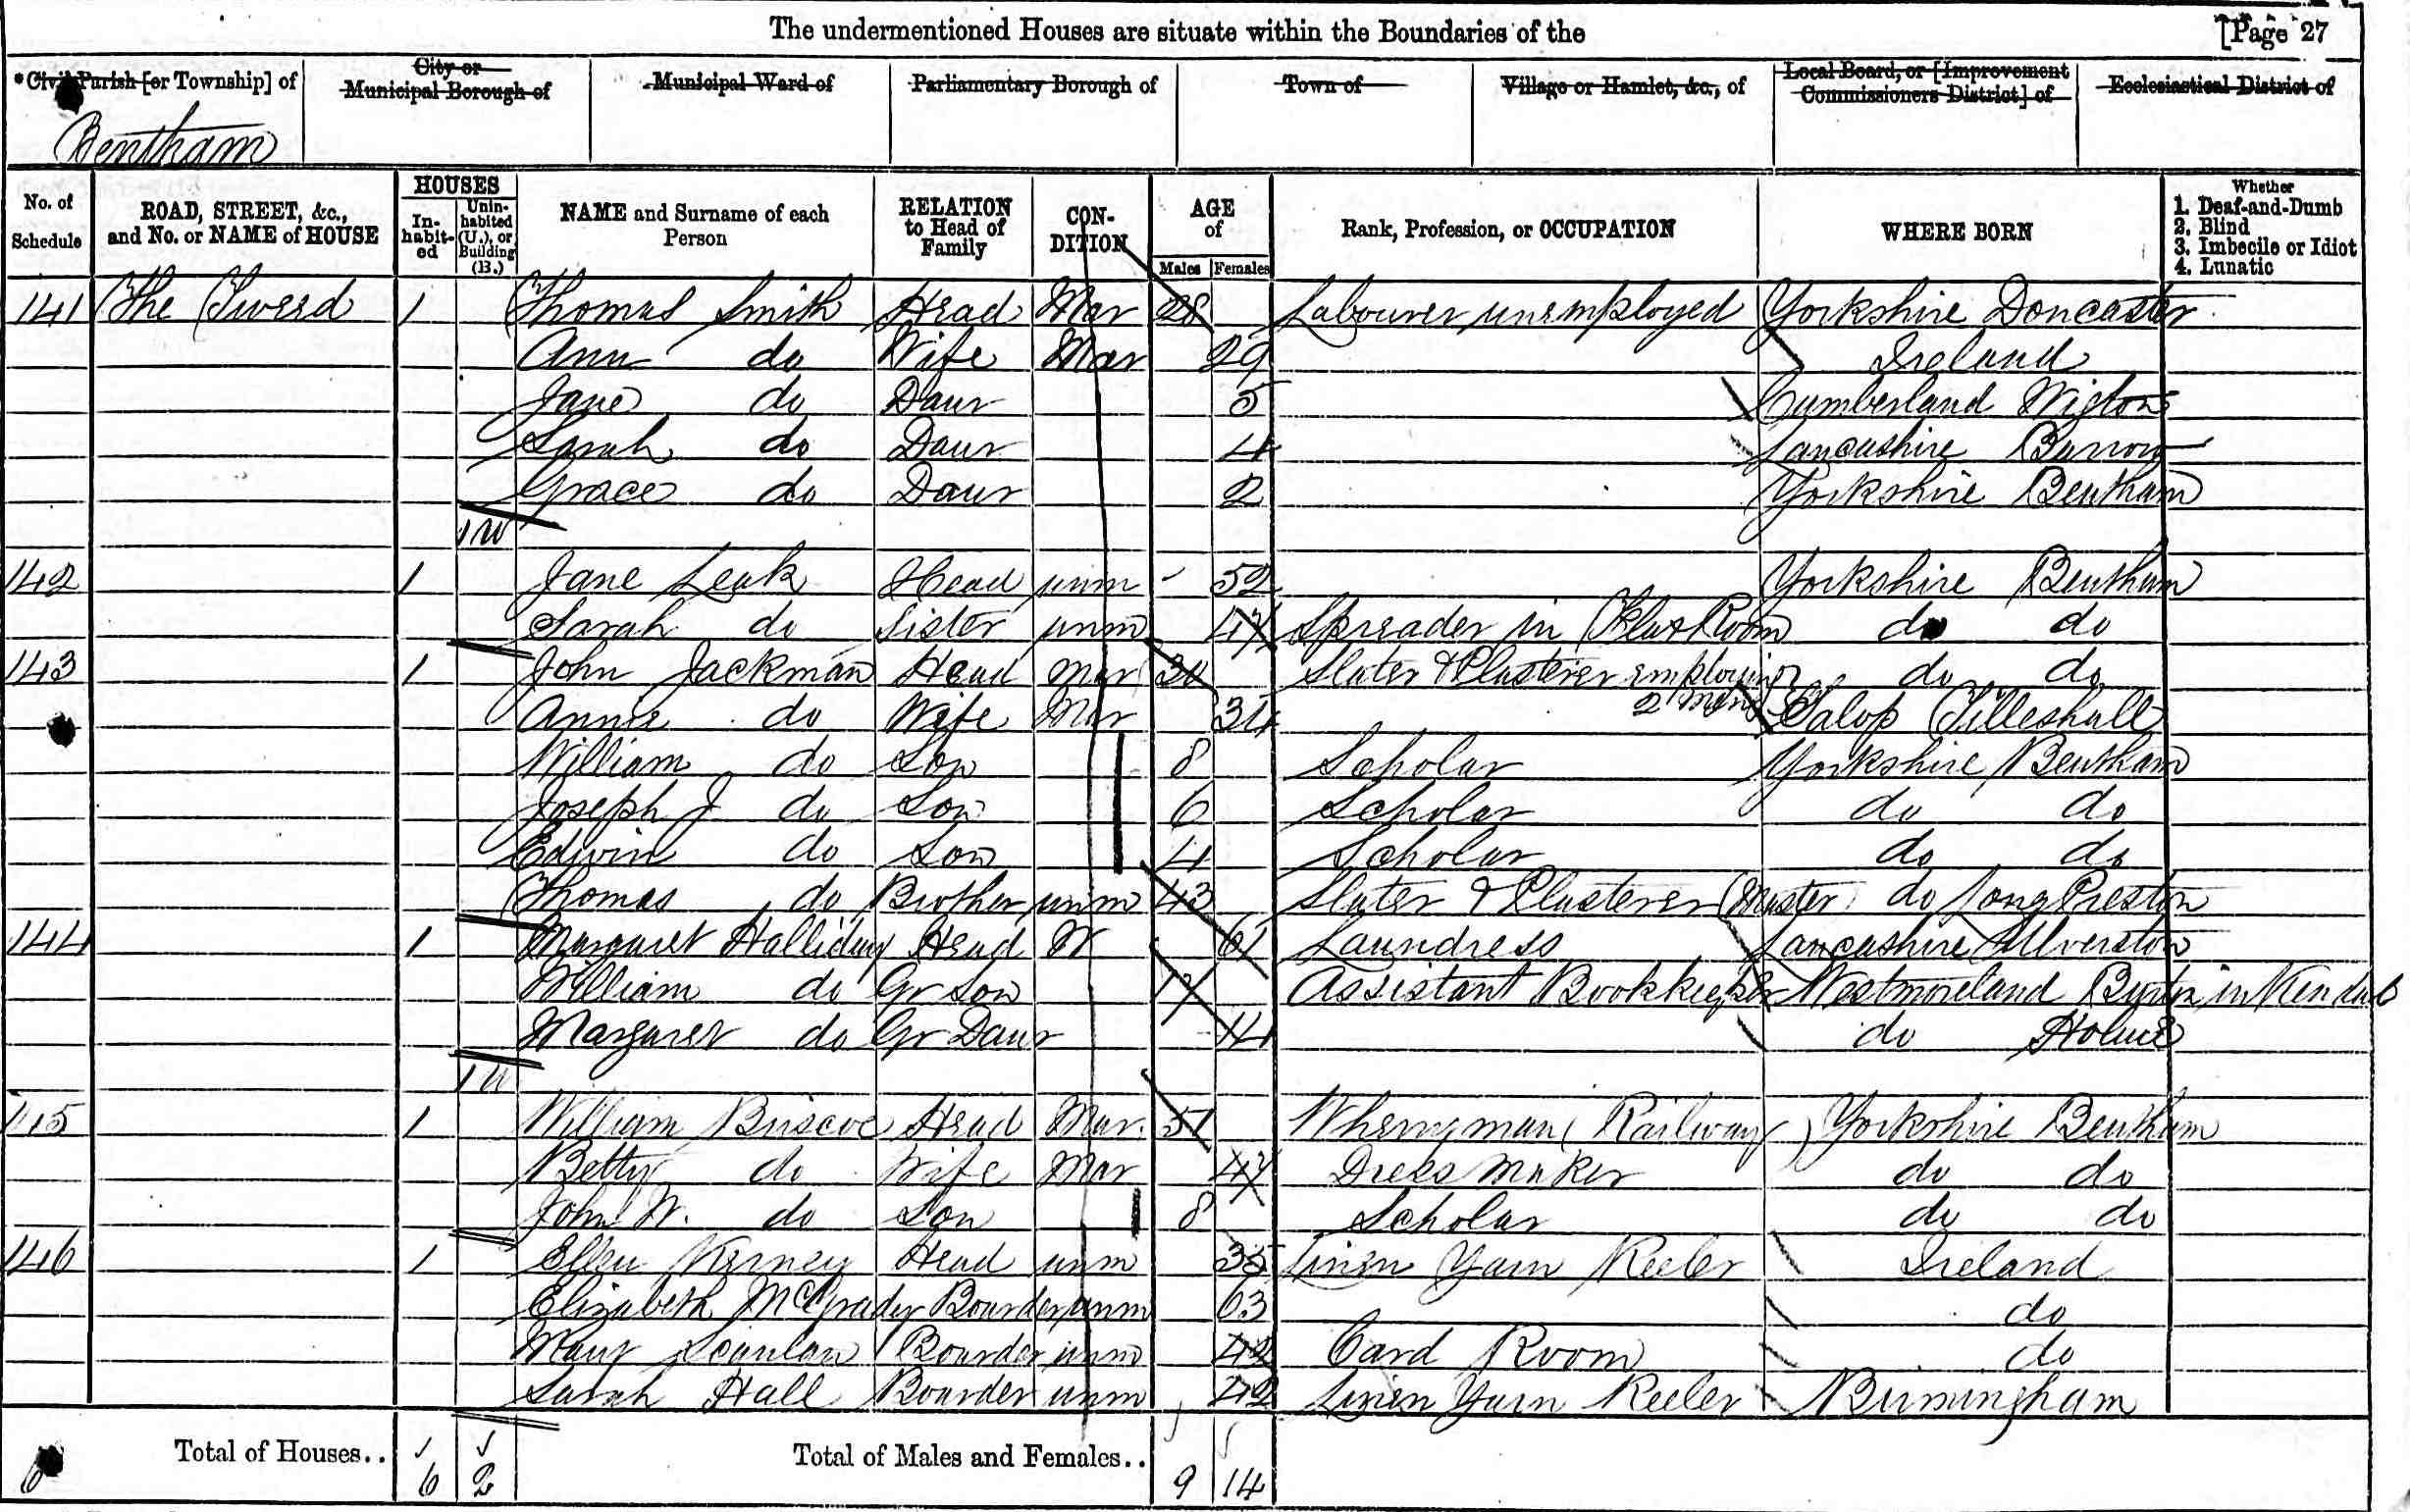 The undermentioned Houses are situate within the Boundaries of the [Page 27
*Civil Parish [or Township] of City or Municipal Borough of Municipal Ward of Parliamentary Borough of Town of Village or Hamlet, &c., of Local Board, or [Improvement Commissioners District] of Ecclesiastical District of
Bentham
No. of Schedule ROAD, STREET, &c., and No. or NAME of HOUSE HOUSES In-habit-ed Unin-habited (U.), or Building (B.) NAME and Surname of each Person RELATION to Head of Family CON-DITION AGE of Males Females Rank, Profession, or OCCUPATION WHERE BORN Whether 1. Deaf-and-Dumb 2. Blind 3. Imbecile or Idiot 4. Lunatic
141 The 1 Thomas Smith Head Mar 28 Labourer unemployed Yorkshire Doncaster
Ann do Wife Mar 29 Ireland
Jane do Daur 5 Cumberland Wigton
Sarah do Daur 4 Lancashire Barrow
Grace do Daur 2 Yorkshire Bentham
1U
142 1 Jane Leak Head unm 52 Yorkshire Bentham
Sarah do Sister unm 47 Spreader in Flax Room do do
143 1 John Jackman Head Mar Slater & Plasterer employing 2 men do do
Annie do Wife Mar 34 Salop Lilleshall
William do Son 8 Scholar Yorkshire Bentham
Joseph J do Son 6 Scholar do do
Edwin do Son 4 Scholar do do
Thomas do Brother unm 43 Slater & Plasterer (Master) do Long Preston
144 1 Margaret Halliday Head W 61 Laundress Lancashire Ulverston
William do Gr Son 17 Assistant Bookkeeper Westmoreland Burton in Kendal
Margaret do Gr Daur 14 do Holme
1U
145 1 William Briscoe Head Mar. 51 (Railway) Yorkshire Bentham
Betty do Wife Mar 47 Dress Maker do do
John W. do Son 8 Scholar do do
146 1 Ellen Kerney Head unm 35 Linen Yarn Reeler Ireland
Elizabeth McGrady Boarder unm 63 do
Mary Scanlan Boarder unm 42 Card Room do
Sarah Hall Boarder unm 42 Linen Yarn Reeler Birmingham
Total of Houses.. 6 2 Total of Males and Females.. 9 14
6